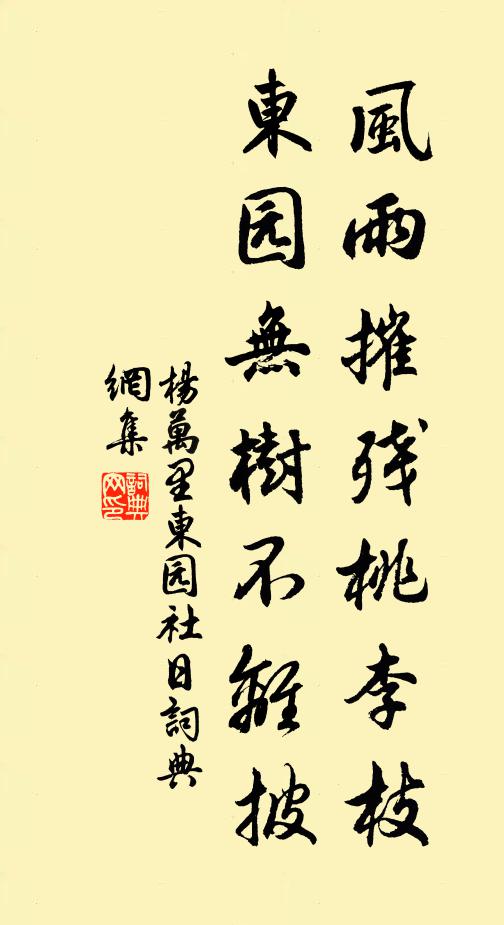 風雨摧残桃李枝
東园無樹不離披
楊萬里東园社日詞典
網集
詞典
网印